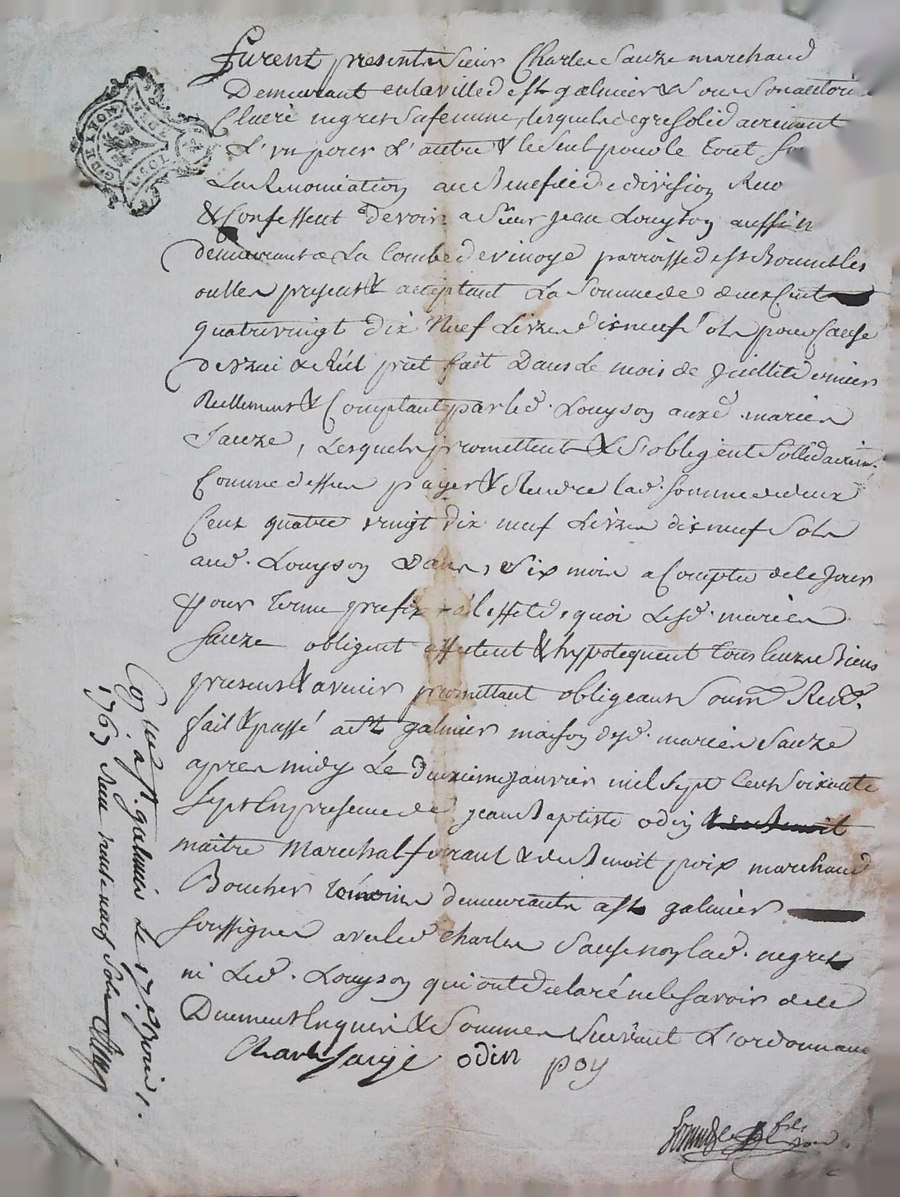 furent presents Sieur Charles Sauze marchand
Demeurant en la ville de st galmier & sous son autori
Claire negret sa femme, lesquels de gre solidairement
L'un pour L'autre & le seul pour le tout
La Renonciation au Benefice de division
& Confessent devoir a Sieur jean Louyson
demeurant a La Combe parroisse de st Bonnet les
oulles present & acceptant La Somme de deux Cents
quatre vingt dix Neuf Livres dix neuf sols pour Cause
de vrai & Réél pret fait Dans Le mois de juillet dernier
Réellement & Comptant par led. Louyson auxd. mariés
Sauze, Lesquels promettent & s'obligent sollidairem.
Comme dessus payer & Rendre lad. somme de deux
Cent quatre vingt dix neuf Livres dix neuf sols
aud. Louyson Dans six mois a Compter de le jour
pour terme prefix a l'effet de quoi Lesd. mariés
Sauze obligent affectent & hypotequent tous leurs Biens
presents & avenir promettant obligeant soum.
fait & passé a st galmier maison desd. mariés Sauze
apres midy Le janvier mil sept Cent soixante
sept En presence de jean Baptiste odin
maitre Marechal ferrant & de Benoit poix marchand
Boucher temoins demeurants a st galmier
soussignés avec led. Charles Sauze non lad. negret
ni Led. Louyson qui ont declaré ne le savoir de le
Duement Enquis & Sommés Suivant L'ordonnance
Charle sauze odin poy
fils
Con.lé a st. galmier Le 17e. janvier
1767 Reçu trente neuf sols